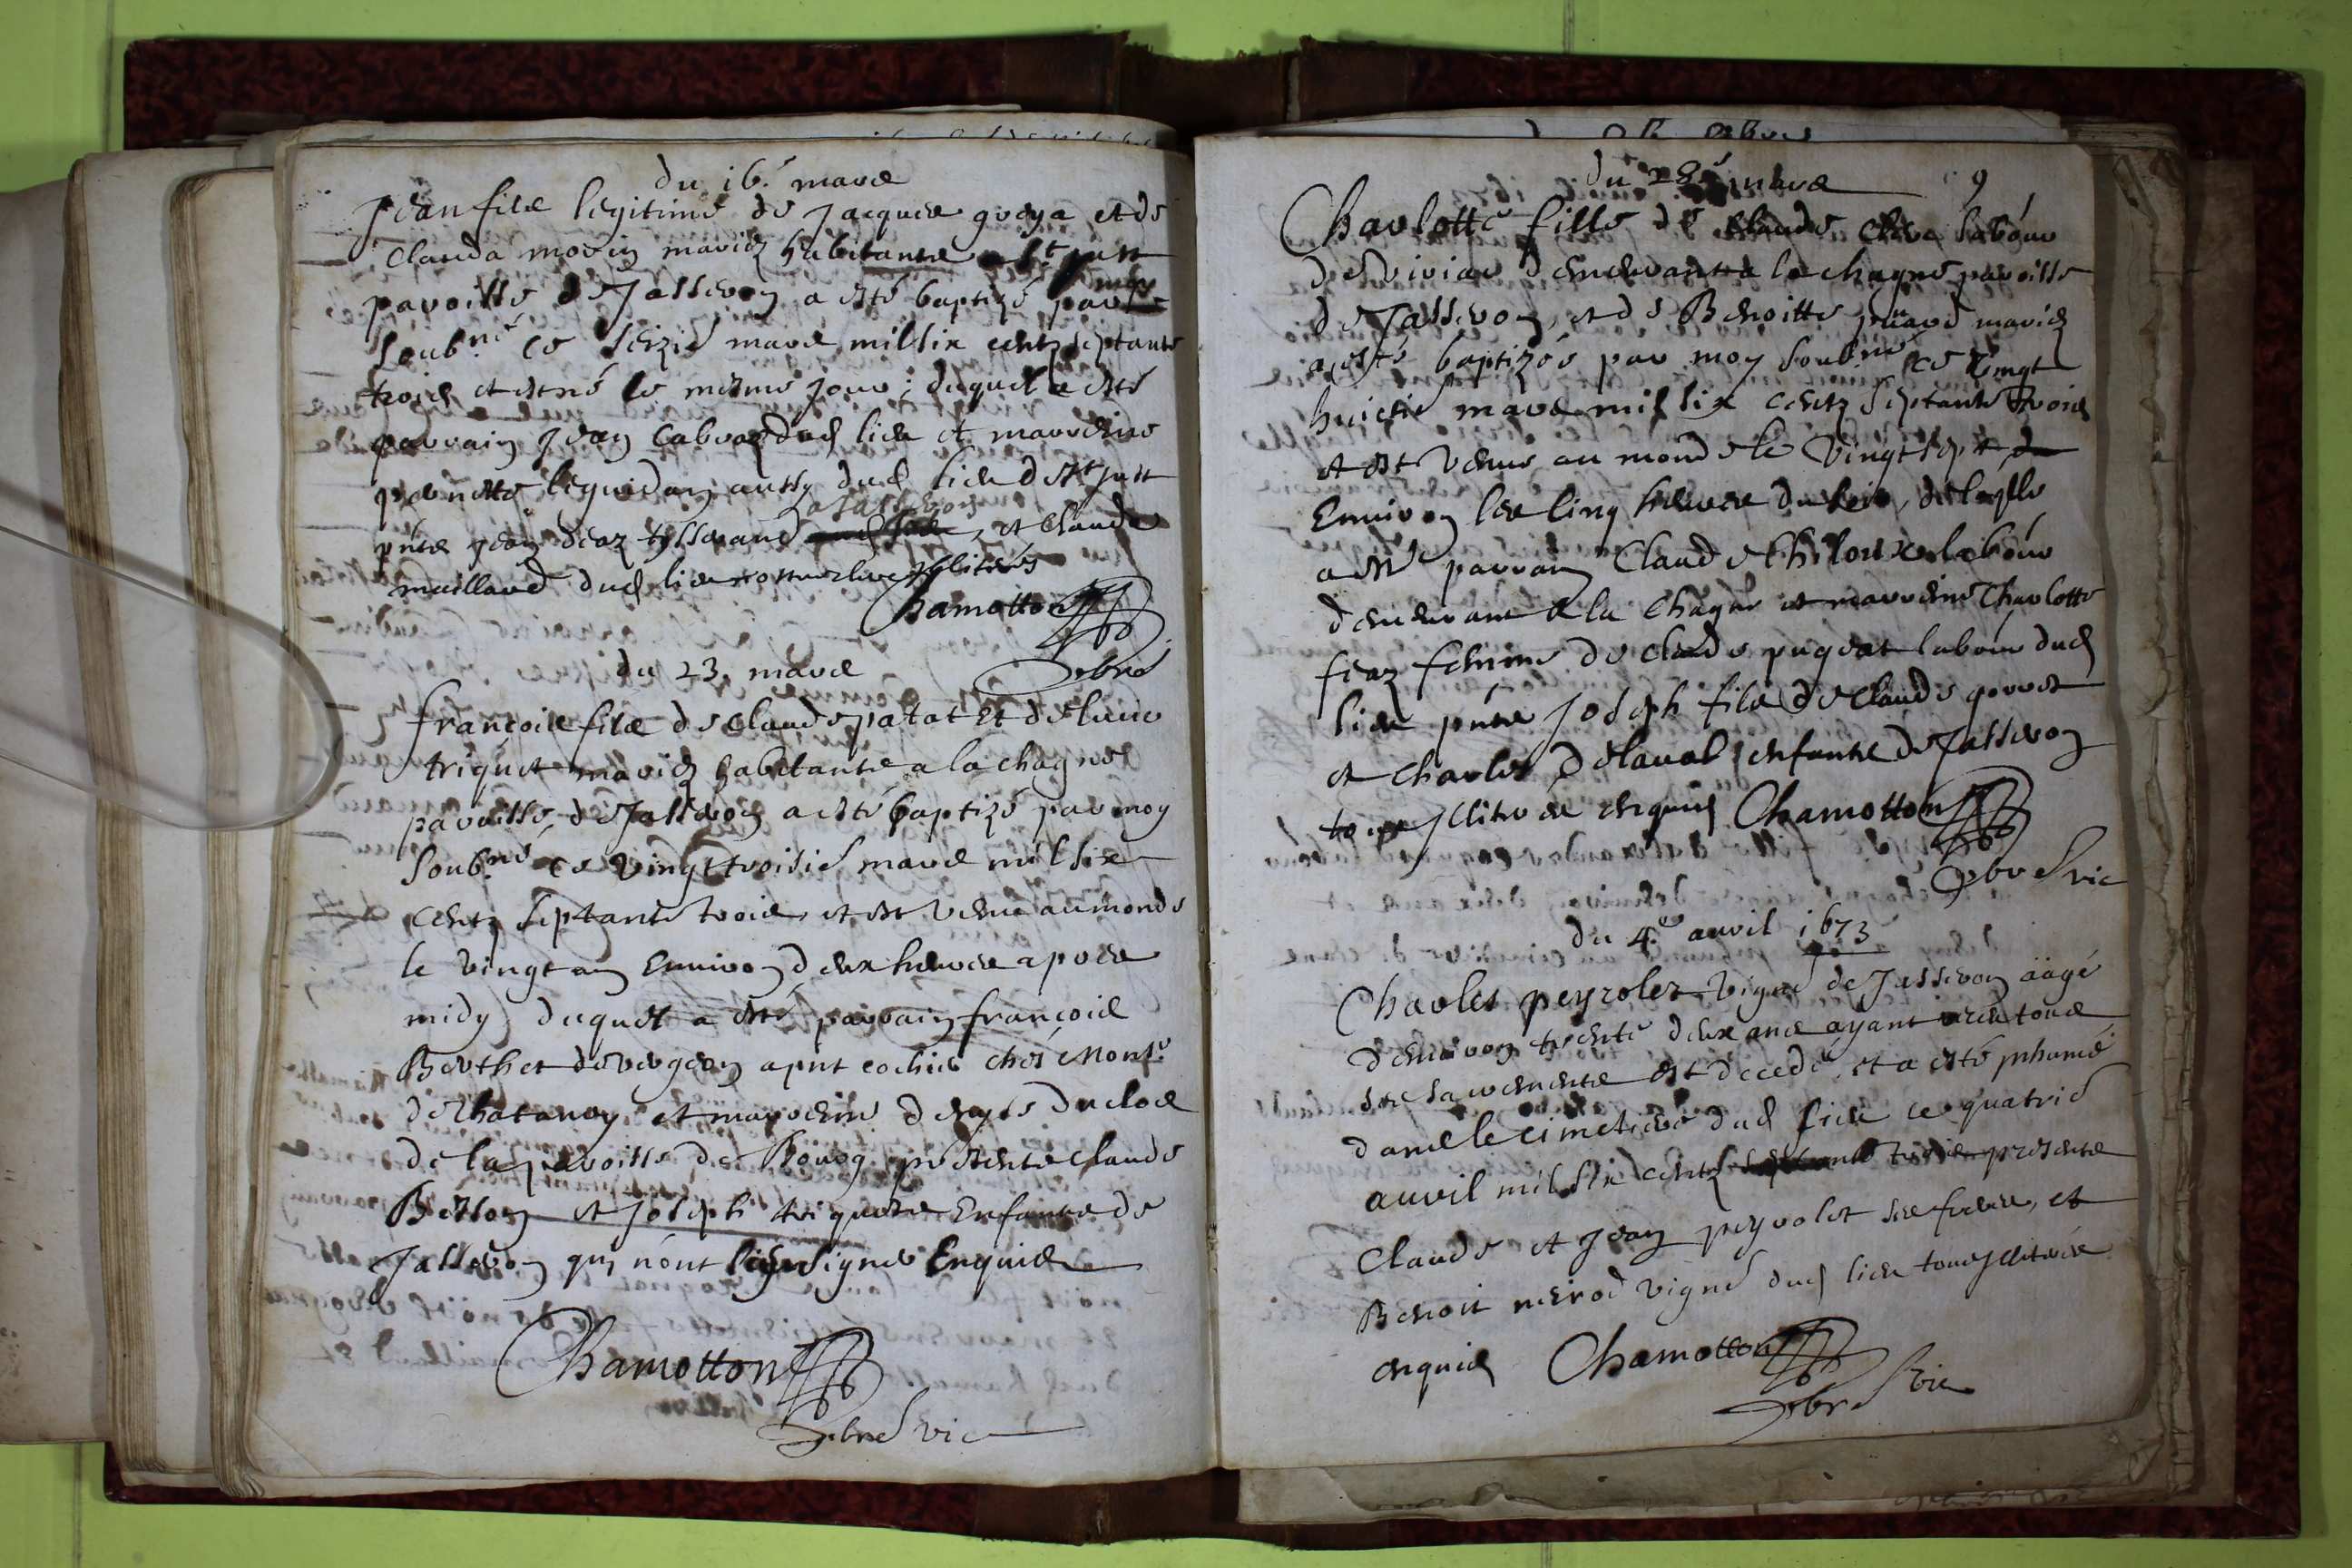 du 16.e mars
Jean filz legitime de Jacques goeya et de
Clauda morin mariez habitants a St just
paroisse de Jasseron a esté baptizé par moy
soub.né ce seizie mars mil six centz septante
trois et est né le mesme jour: duquel a esté
parrain Jean dud lieu et marreine
pernette leguidon aussy dud lieu de St just
pnts Jean deaz tysserand a Jasseron, et Claude
maillard dud lieu illiterés
Chamotton
pbre
du 23. mars
françois filz de Claude patat Et de
triquet mariez habitants a la chagne
paroisse, de Jasseron a esté baptizé par moy
soub.né ce vingt troisie mars mil six
centz septante trois, et est venu au monde
le vingt un Environ deux heures apres
midy duquel a esté parrain françois
Berthet de vergeon apnt cochier chés Monsr
de Chatanay et marreine denyse duclos
de la paroisse de presents claude
Besson et Joseph triquets Enfants de
Jasseron qui n'ont sceu signer Enquis
Chamotton
pbre vic
du 28.e mars 9
Charlotte fille de Claude labour
de viriac demeurants a la chagne paroisse
de Jasseron, et de Benoitte mariez
a esté baptizée par moy soub.né ce vingt
huictie mars mil six centz septante trois
et est venue au monde le vingt sept
Environ les cinq heures du soir, de laqlle
a esté parrain Claude Chiloux labour
demeurant a la Chagne et marreine Charlotte
feaz femme de claude pugeat labour dud
lieu pnts Joseph filz de Claude gorret
et Charles delaval enfants de Jasseron
illiterés enquis Chamotton
pbre vic
du 4.e avril 1673
Charles peyrolet vigne de Jasseron aagé
denviron trente deux ans ayant receu tous
ses sacrements est decedé, et a esté inhumé
dans le cimetiere dud lieu ce quatrie
avril mil six centz septante trois presents
Claude et Jean peyrolet ses freres, et
Benoit merod vigne dud lieu tous illiterés
enquis Chamotton
pbre vic